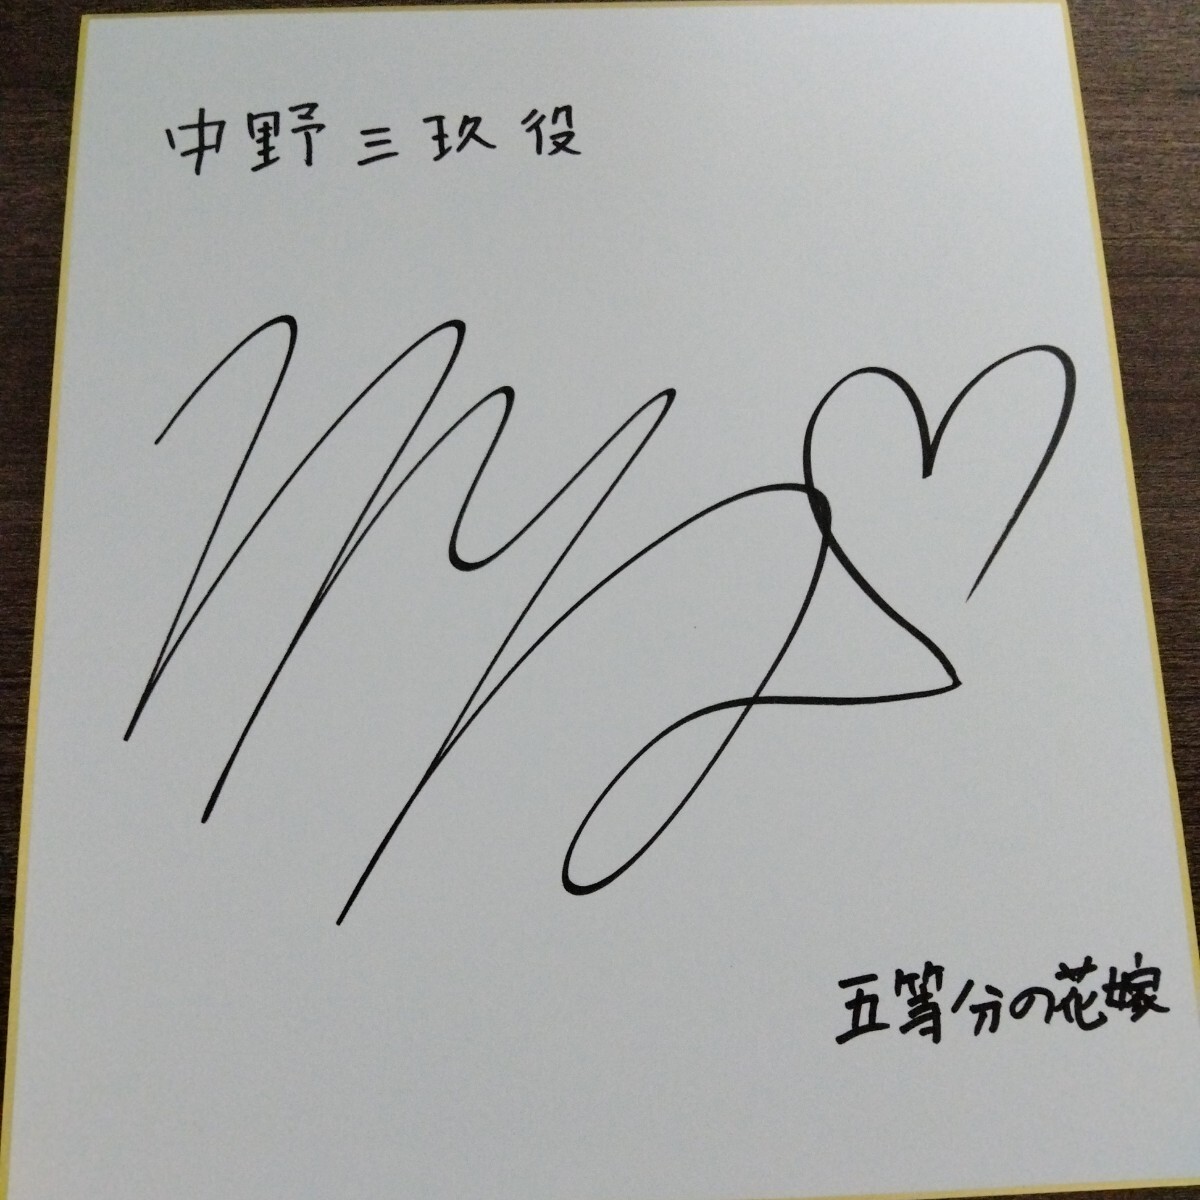 中野三玖役
五等分の花嫁